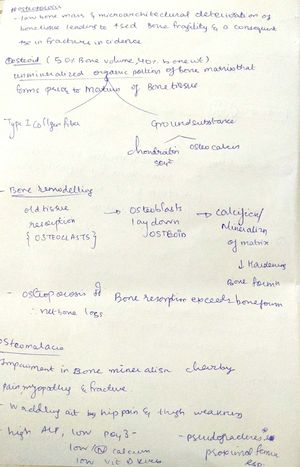 Osteoporosis
- low bone mass & microarchitectural deterioration of
bone tissue leading to ↑sed Bone fragility & a consequent
↑se in fracture incidence
Osteoid (50% Bone volume, 40% bone wt)
unmineralized organic portion of bone matrix that
forms prior to matur<sup>n</sup> of Bone tissue
Type I Collagen fiber
Ground substance
Chondroitin
SO4
osteocalcin
- Bone remodelling
old tissue
resorption
{OSTEOCLASTS}
→ osteoblasts
lay down
OSTEOID
→ calcific<sup>n</sup>/
Mineralisn
of matrix
↓ Hardening
Bone formn
- osteoporosis
Bone resorption exceeds bone form
∴ net bone loss
Osteomalacia
Impairment in Bone mineralisn
pain, myopathy & fracture
- Waddling hip pain & thigh weakness
- high ALP, low PO4 3-
low/(N) calcium
low vit D
- pseudofractures
proximal femur
esp.